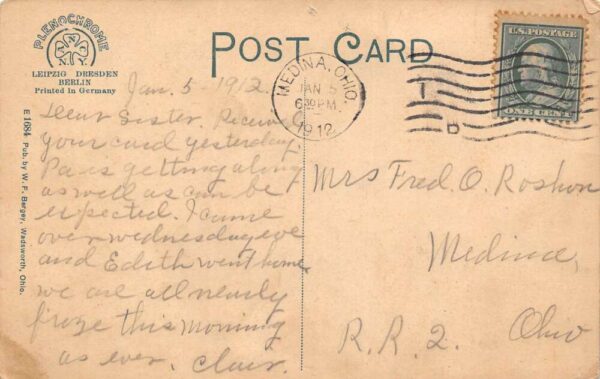 PLENOCHROME
N. Y.
LEIPZIG DRESDEN
BERLIN
Printed in Germany
POST CARD
MEDINA, OHIO.
JAN 5
630 PM
1912
U.S. POSTAGE
ONE CENT
E 1684 Pub. by W. F. Bergey, Wadsworth, Ohio.
Jan. 5 1912.
Dear Sister. Received
your card yesterday,
Pa is getting along
as well as can be
expected. I came
over wednesday eve
and Edith went home
we are all nearly
froze this morning
as ever. Clair.
Mrs Fred. O. Roshon
Medina,
R. R. 2. Ohio